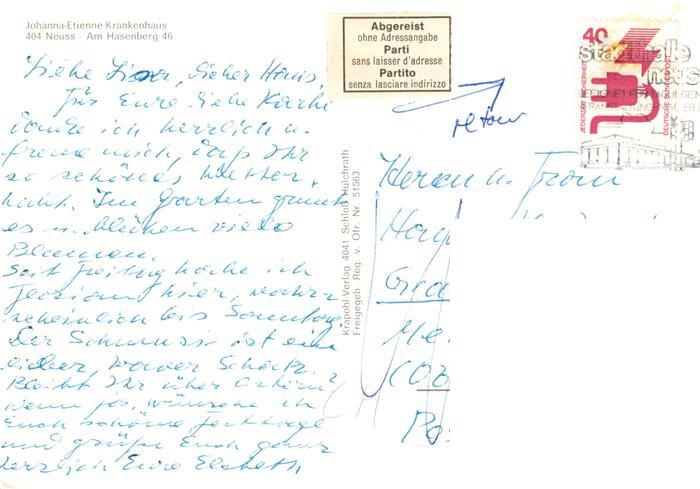 Johanna-Etienne-Krankenhaus
404 Neuss · Am Hasenberg 46
Liebe , lieber Hans
Für Eure liebe Karte
danke ich herzlich u.
freue mich, daß Ihr
so schönes Wetter
habt. Im Garten grünt
es u. blühen viele
Blumen.
Seit Freitag habe ich
hier, wahr-
scheinlich bis Sonntag.
Der ist ein
lieber, Schatz.
Bleibt Ihr über Ostern?
Wenn ja, wünsche ich
Euch schöne Festtage
und grüße Euch ganz
herzlich Eure Elsbeth
Krapohl-Verlag 4041 Schloß Hülchrath
Freigegeb Reg. v. Ofr. Nr. 51563
Abgereist
ohne Adressangabe
Parti
sans laisser d'adresse
Partito
senza lasciare indirizzo
retour
40
JEDERZEIT SICHERHEIT
DEUTSCHE BUNDESPOST
Stadthalle
neuss
GEEIGNET FÜR TAGUNGEN
Herrn u. Frau